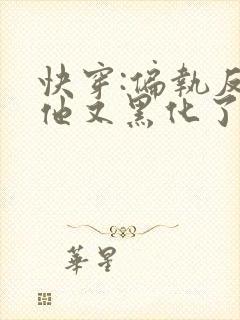 快穿:偏執反
他又黑化了
華星